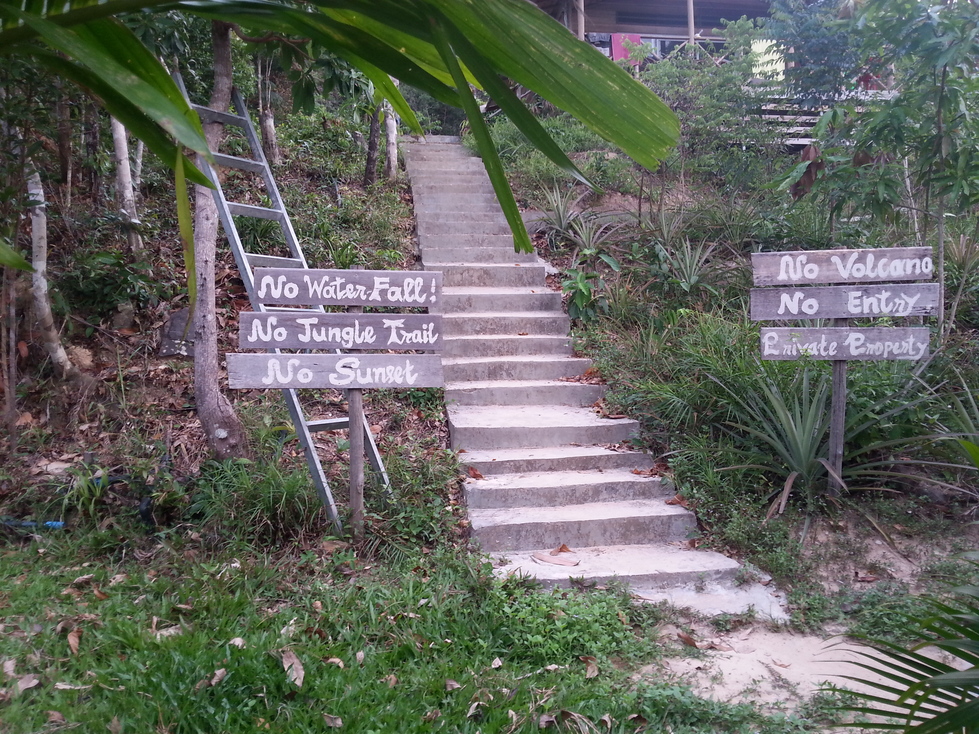 No Water-Fall!
No Jungle Trail
No Sunset
No Volcano
No Entry
Private Property